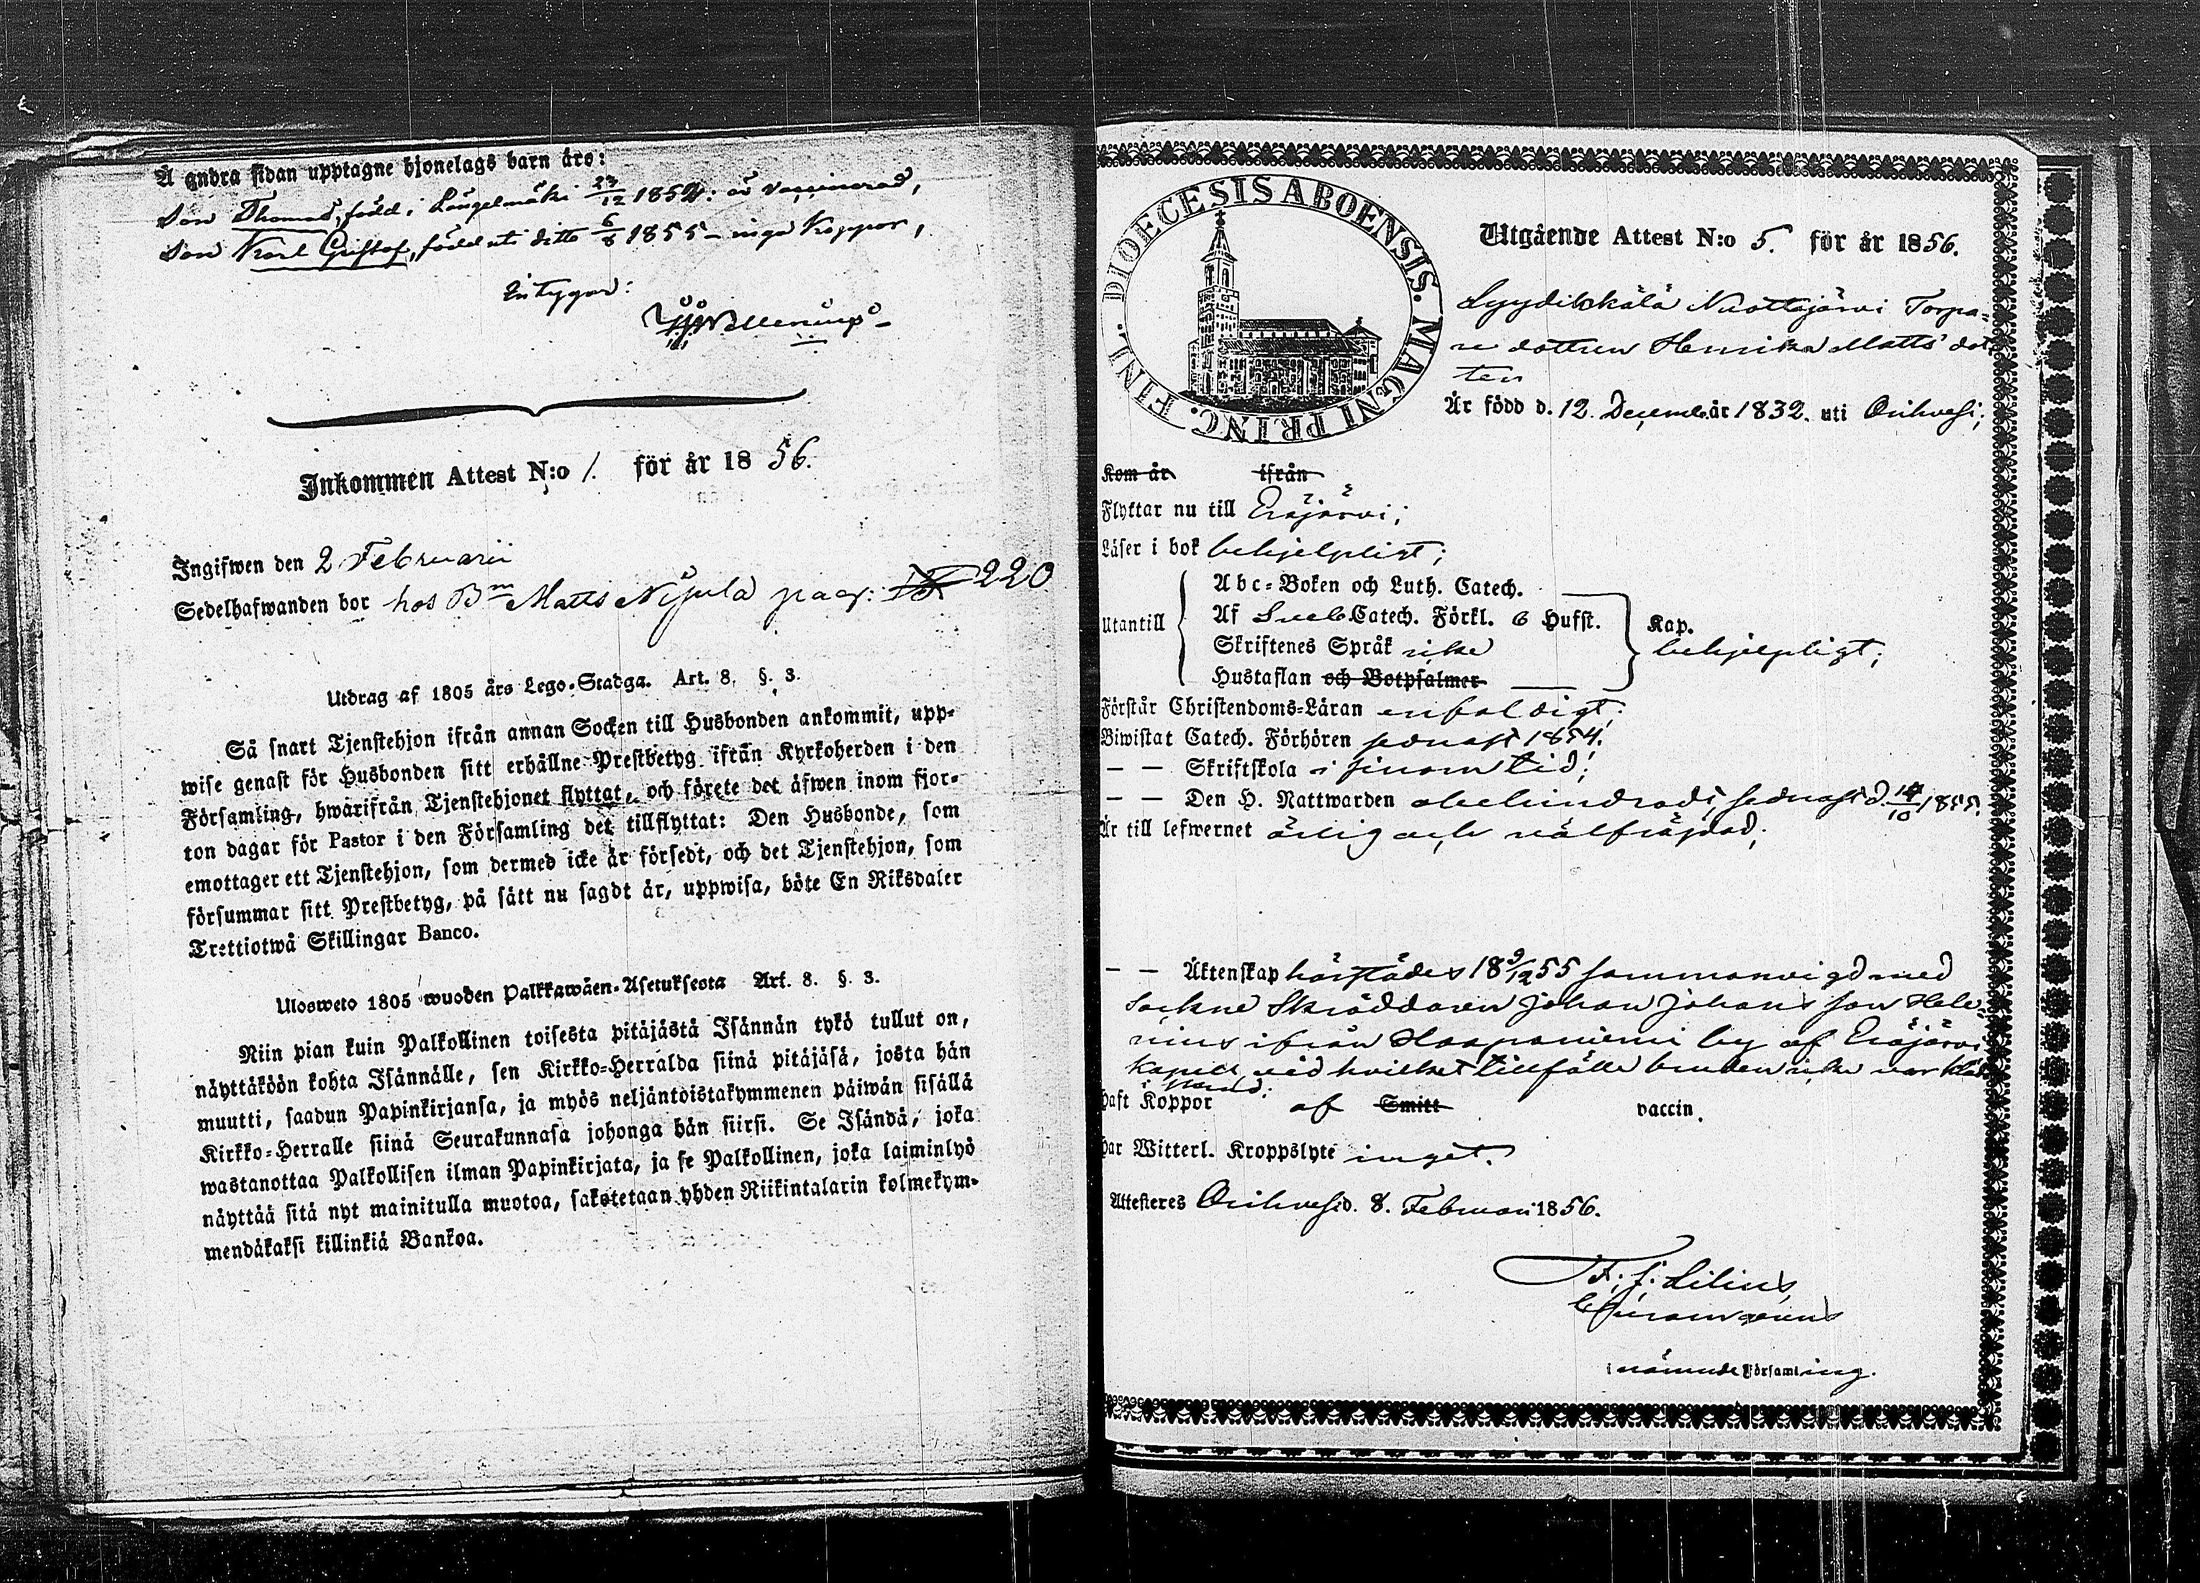 Å andra sidan upptagne hjonelags barn äro:
Son Thomas, född i Längelmäki 23/12 1852. är vaccinerad,
Son Karl Gustaf, född uti ditto 6/8 1855 – inga Koppor,
Intygar:
Inkommen Attest N:o 1. för år 1856.
Ingifwen den 2 Februarii
Sedelhafwanden bor hos Bn Matts Nipula pag: 220
Utdrag af 1805 års Lego-Stadga. Art. 8. §. 3.
Så snart Tjenstehjon ifrån annan Socken till Husbonden ankommit, upp-
wise genast för Husbonden sitt erhållne Prestbetyg ifrån Kyrkoherden i den
Församling, hwarifrån Tjenstehjonet flyttat, och förete det äfwen inom fjor-
ton dagar för Pastor i den Församling det tillflyttat: Den Husbonde, som
emottager ett Tjenstehjon, som dermed icke är försedt, och det Tjenstehjon, som
försummar sitt Prestbetyg, på sätt nu sagdt är, uppwisa, böte En Riksdaler
Trettiotwå Skillingar Banco.
Ulosweto 1805 wuoden Palkkawäen-Asetuksesta Art. 8. §. 3.
Niin pian kuin Palkollinen toisesta pitäjästä Isännän tykö tullut on,
näyttäköön kohta Isännälle, sen Kirkko-Herralda siinä pitäjäsä, josta hän
muutti, saadun Papinkirjansa, ja myös neljäntoistakymmenen päiwän sisällä
Kirkko-Herralle siinä Seurakunnasa johonga hän siirsi. Se Isändä, joka
wastanottaa Palkollisen ilman Papinkirjata, ja se Palkollinen, joka laiminlyö
näyttää sitä nyt mainitulla muotoa, sakotetaan yhden Riikintalarin kolmekym-
mendäkaksi killinkiä Bankoa.
DIOECESIS ABOENSIS. MAGNI PRINC. FINL.
Utgående Attest N:o 5. för år 1856.
Lyydikkälä Nuottajärvi Torpa-
re dottren Henrika Matts dot
ter
Är född d. 12. Decembr år 1832. uti Orihvesi;
Kom år ifrån
Flyttar nu till Eräjärvi;
Läser i bok behjelpligt;
Utantill
Abc-Boken och Luth. Catech.
Af Sveb. Catech. Förkl. 6 Hufst. Kap.
Skriftenes Språk icke behjelpligt;
Hustaflan och Botpsalmer
Förstår Christendoms-Läran enfaldigt;
Biwistat Catech. Förhören senast 1854.
— — Skriftskola i sinom tid;
— — Den H. Nattwarden obehindradt, senast d. 14/10 1855.
Är till lefwernet ärlig och välfräjdad;
— — Äktenskap härstädes 18 9/12 55 sammanvigd med
Sockne Skräddaren Johan Johans son Hele-
nius ifrån Haapaniemi by af Eräjärvi
Kapell, vid hvilket tillfälle bruden icke var kläd
i skrud.
Haft Koppor af Smitt vaccin.
Har Witterl. Kroppslyte inget.
Attesteres Orihvesi d. 8. Februari 1856.
F. J. Lilius,
i nämnde Församling.